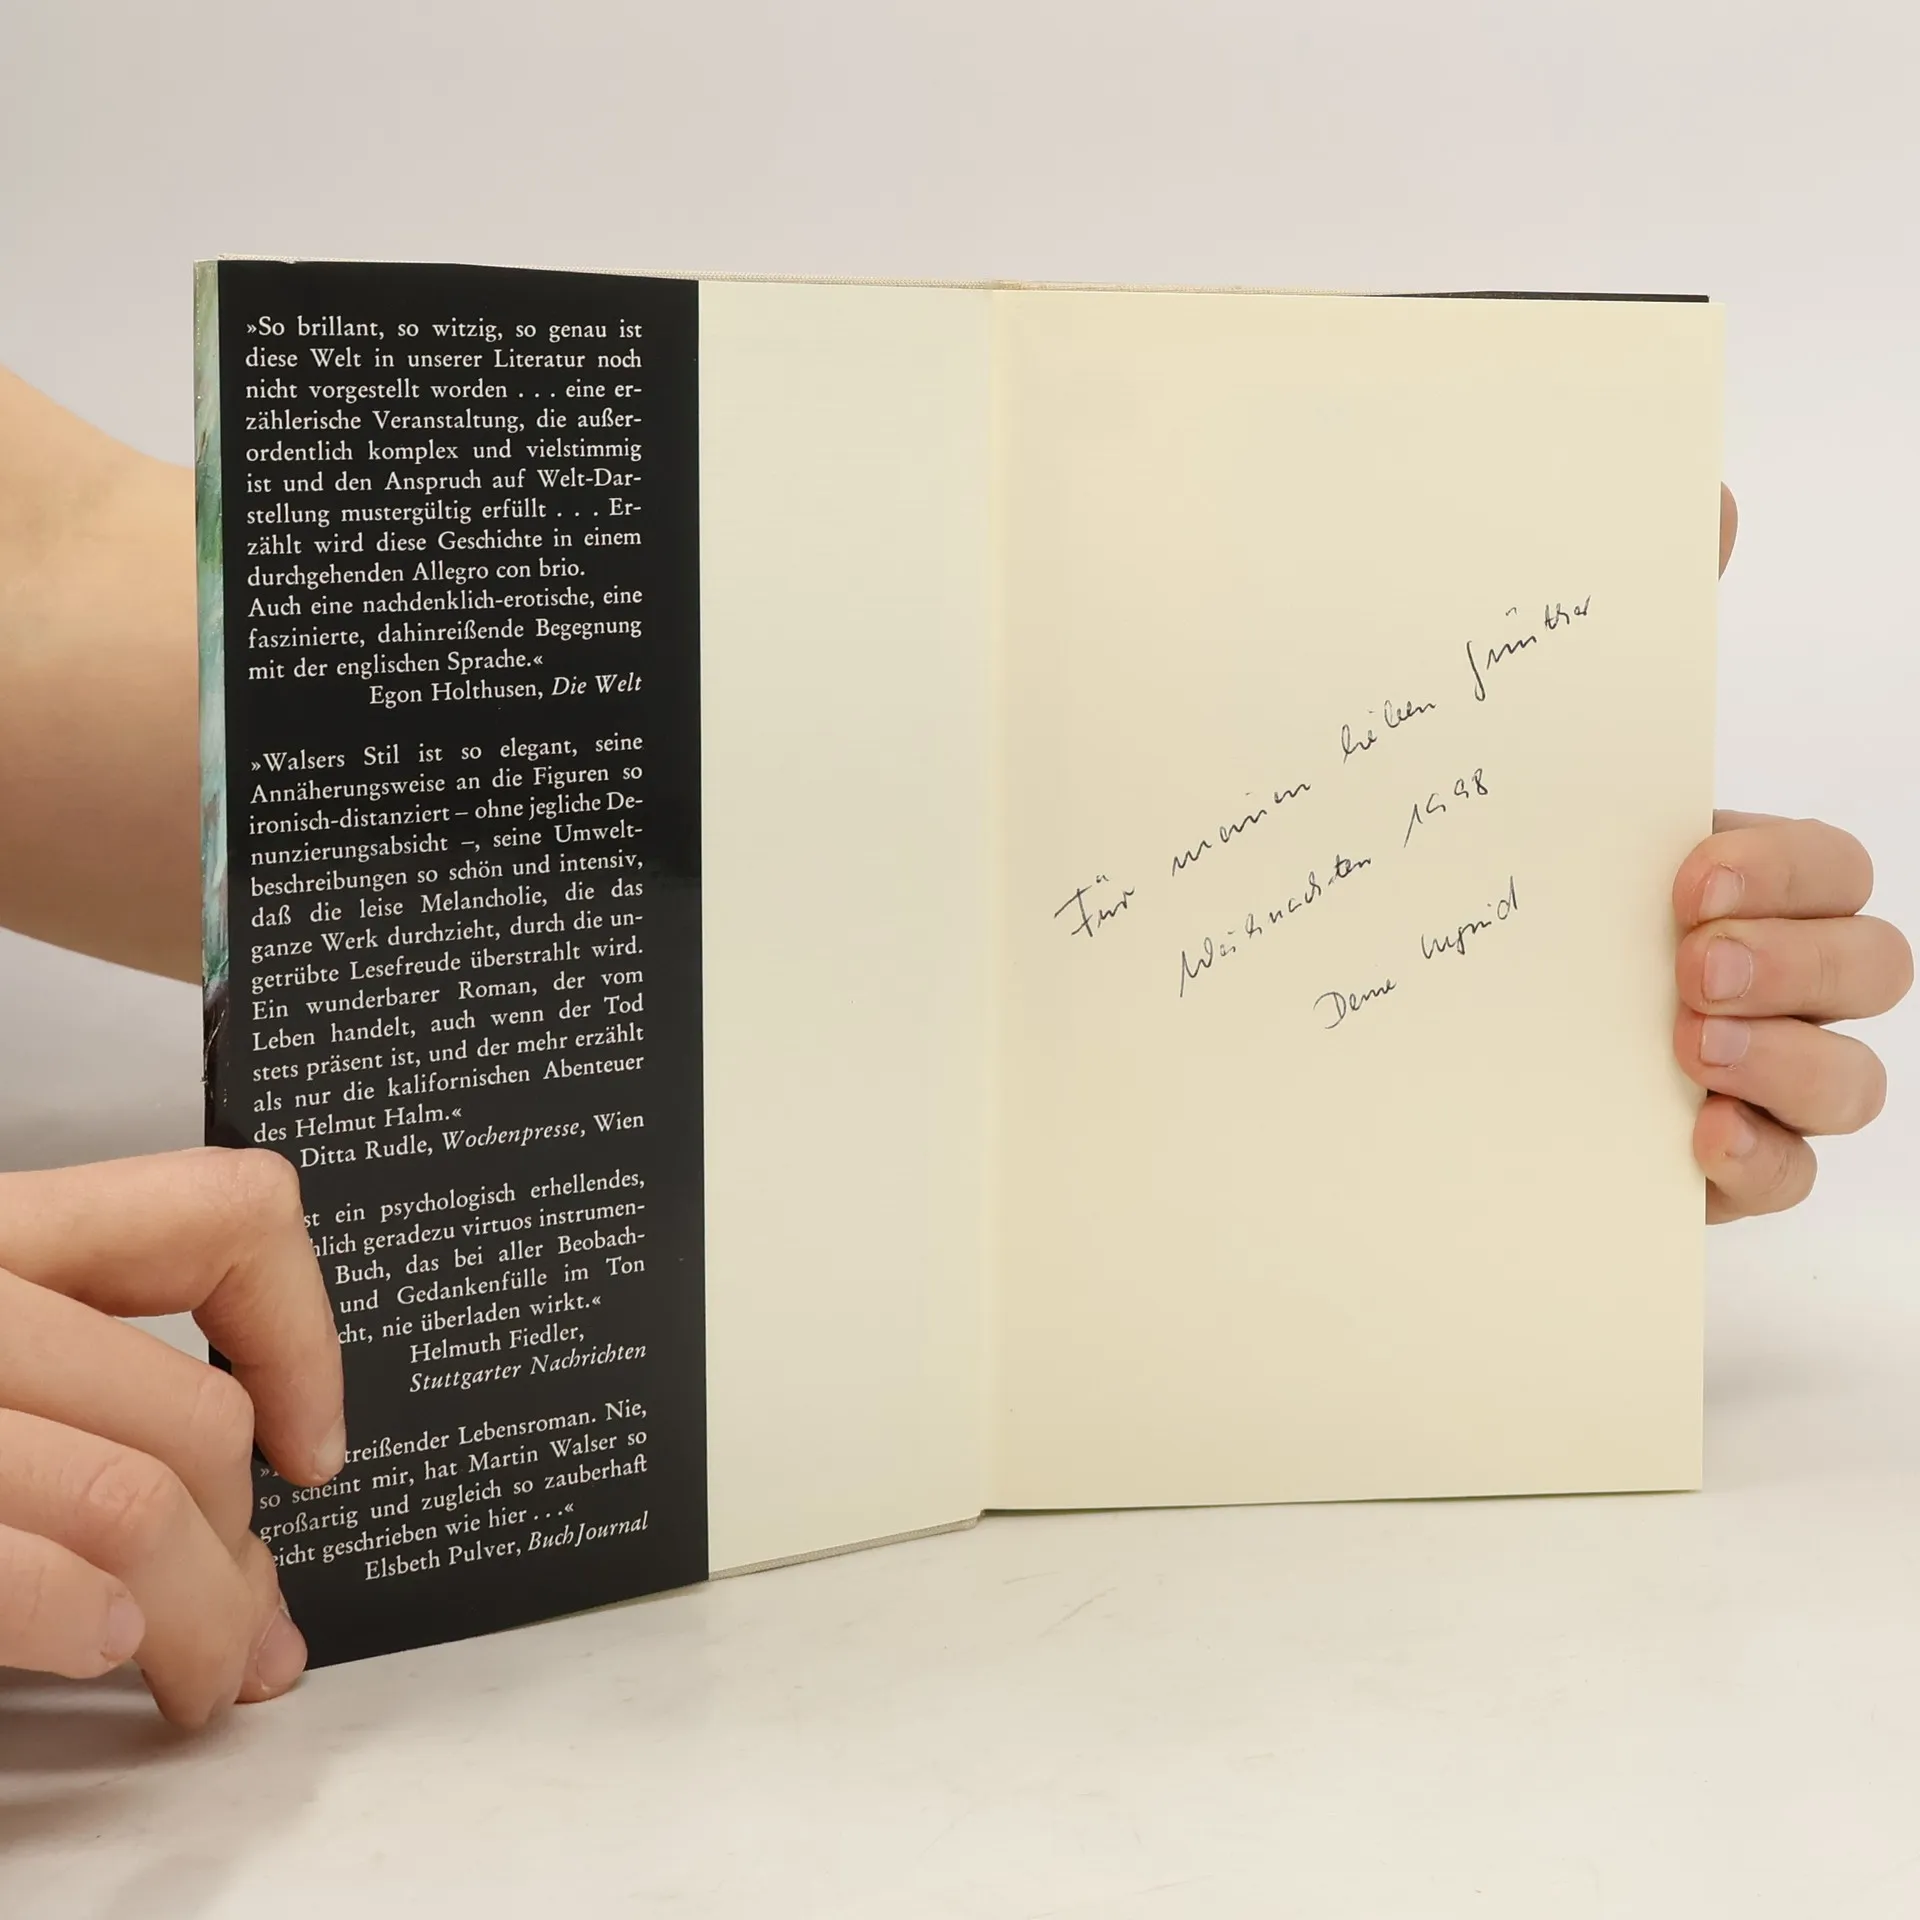 »So brillant, so witzig, so genau ist
diese Welt in unserer Literatur noch
nicht vorgestellt worden . . . eine er-
zählerische Veranstaltung, die außer-
ordentlich komplex und vielstimmig
ist und den Anspruch auf Welt-Dar-
stellung mustergültig erfüllt . . . Er-
zählt wird diese Geschichte in einem
durchgehenden Allegro con brio.
Auch eine nachdenklich-erotische, eine
faszinierte, dahinreißende Begegnung
mit der englischen Sprache.«
Egon Holthusen, Die Welt
»Walsers Stil ist so elegant, seine
Annäherungsweise an die Figuren so
ironisch-distanziert – ohne jegliche De-
nunzierungsabsicht –, seine Umwelt-
beschreibungen so schön und intensiv,
daß die leise Melancholie, die das
ganze Werk durchzieht, durch die un-
getrübte Lesefreude überstrahlt wird.
Ein wunderbarer Roman, der vom
Leben handelt, auch wenn der Tod
stets präsent ist, und der mehr erzählt
als nur die kalifornischen Abenteuer
des Helmut Halm.«
Ditta Rudle, Wochenpresse, Wien
ein psychologisch erhellendes,
geradezu virtuos instrumen-
Buch, das bei aller Beobach-
und Gedankenfülle im Ton
nie überladen wirkt.«
Helmuth Fiedler,
Stuttgarter Nachrichten
Lebensroman. Nie,
so scheint mir, hat Martin Walser so
großartig und zugleich so zauberhaft
geschrieben wie hier . . .«
Elsbeth Pulver, BuchJournal
Für meinen lieben Günther
Weihnachten 1998
Deine Ingrid